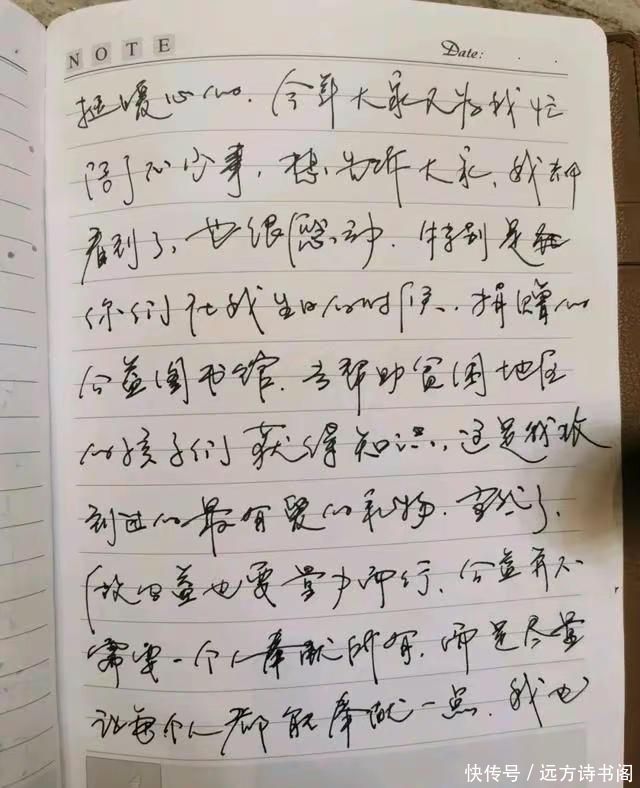 NOTE
Date:
挺暖心的.今年大家又为我忙
陪了不少事,想告诉大家,我都
看到了,也很感动.特别是
你们在我生日的时候,捐赠的
公益图书馆.去帮助贫困地区
的孩子们获得知识,这是我收
到过的最有爱的礼物.当然了,
做公益也要量力而行,公益并不
需要一个人奉献所有,而是尽量
让每个人都能奉献一点.我也
快传号/远方诗书阁